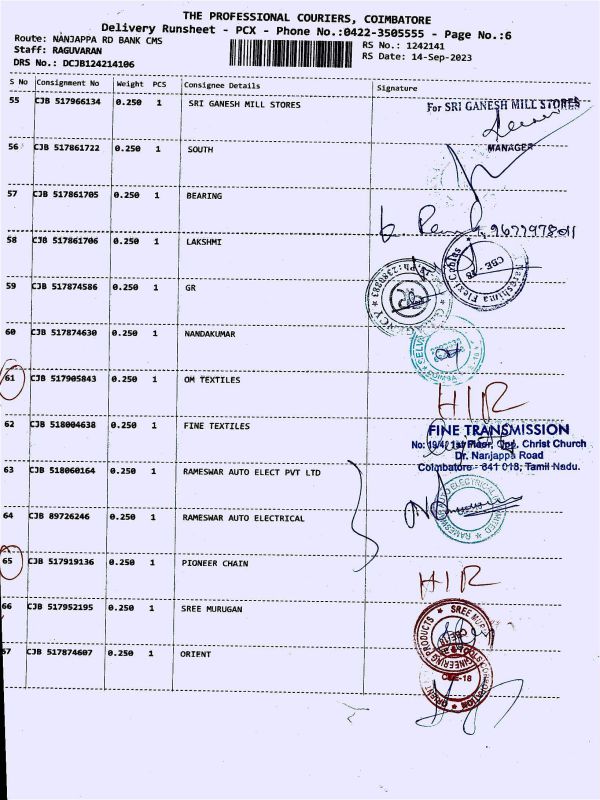 THE PROFESSIONAL COURIERS, COIMBATORE
Delivery Runsheet - PCX - Phone No.:0422-3505555 - Page No.:6
Route: NANJAPPA RD BANK CMS
RS No.: 1242141
Staff: RAGUVARAN
RS Date: 14-Sep-2023
DRS No.: DCJB124214106
S No Consignment No Weight PCS Consignee Details Signature
55 CJB 517966134 0.250 1 SRI GANESH MILL STORES
For SRI GANESH MILL STORES
MANAGER
56 CJB 517861722 0.250 1 SOUTH
57 CJB 517861705 0.250 1 BEARING
9677978011
58 CJB 517861706 0.250 1 LAKSHMI
CBE-18
Flexi-Cobles
59 CJB 517874586 0.250 1 GR
60 CJB 517874630 0.250 1 NANDAKUMAR
61 CJB 517905843 0.250 1 OM TEXTILES
HIR
62 CJB 518004638 0.250 1 FINE TEXTILES
FINE TRANSMISSION
No: 19/4, 1st Floor, Opp. Christ Church
Dr. Nanjappa Road
Coimbatore - 641 018, Tamil Nadu.
63 CJB 518060164 0.250 1 RAMESWAR AUTO ELECT PVT LTD
64 CJB 89726246 0.250 1 RAMESWAR AUTO ELECTRICAL
65 CJB 517919136 0.250 1 PIONEER CHAIN
HIR
66 CJB 517952195 0.250 1 SREE MURUGAN
67 CJB 517874607 0.250 1 ORIENT
CBE-18